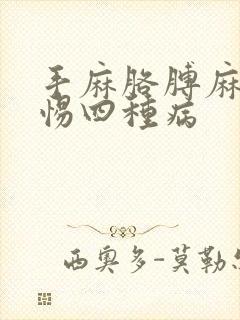 手麻胳膊麻
惕四種病
西奧多-莫勒